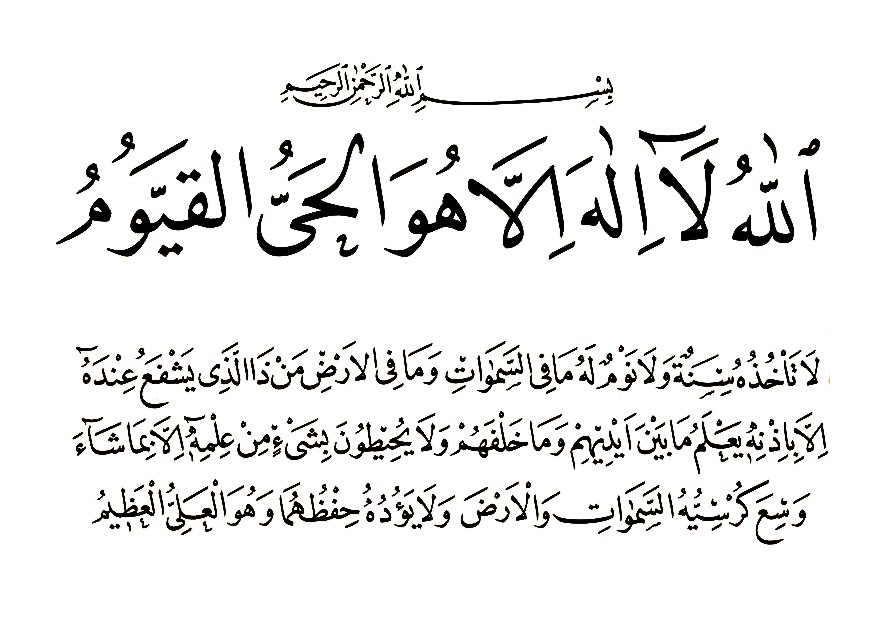 بِسْمِ ٱللّٰهِ ٱلرَّحْمٰنِ ٱلرَّحِيمِ
ٱللّٰهُ لَآ اِلٰهَ اِلَّا هُوَ الْحَىُّ الْقَيُّومُ
لَا تَأْخُذُهُ سِنَةٌ وَلَا نَوْمٌ لَهُ مَا فِى السَّمٰوَاتِ وَمَا فِى الْاَرْضِ مَنْ ذَا الَّذِى يَشْفَعُ عِنْدَهُٓ
اِلَّا بِاِذْنِهِ يَعْلَمُ مَا بَيْنَ اَيْدِيهِمْ وَمَا خَلْفَهُمْ وَلَا يُحِيطُونَ بِشَىْءٍ مِنْ عِلْمِهِٓ اِلَّا بِمَا شَآءَ
وَسِعَ كُرْسِيُّهُ السَّمٰوَاتِ وَالْاَرْضَ وَلَا يَؤُدُهُ حِفْظُهُمَا وَهُوَ الْعَلِىُّ الْعَظِيمُ